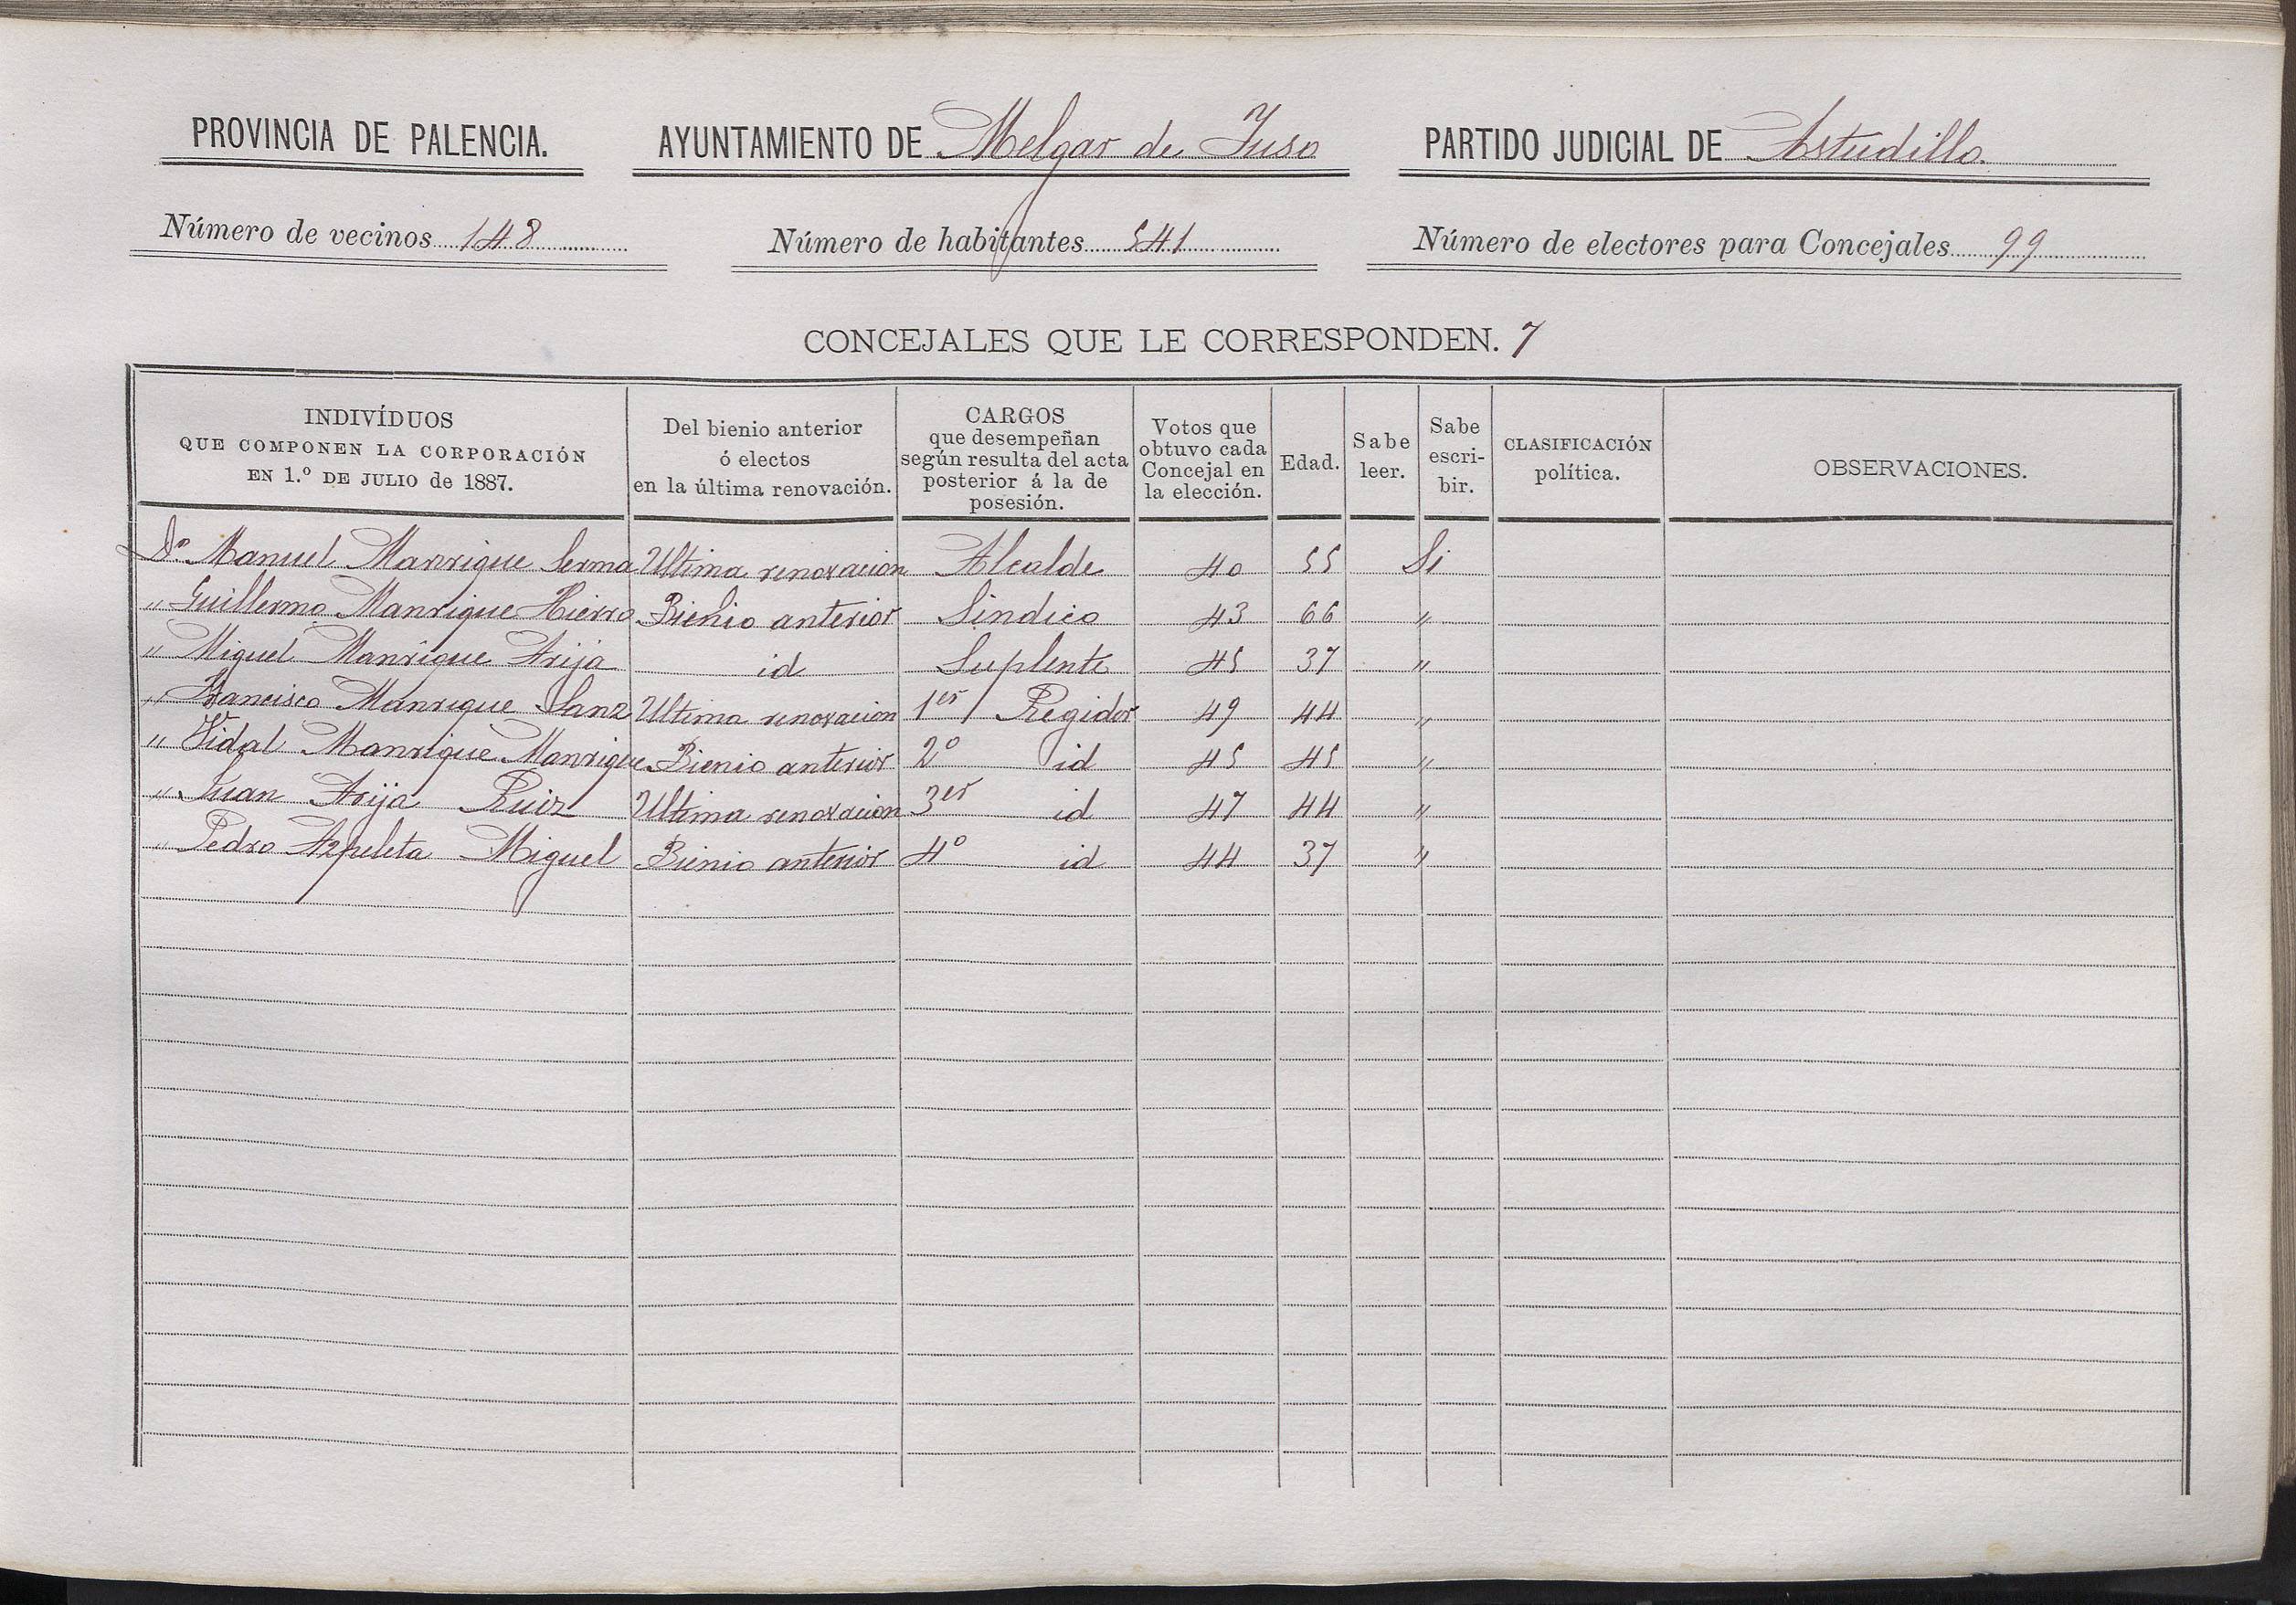 PROVINCIA DE PALENCIA. AYUNTAMIENTO DE Melgar de Yuso PARTIDO JUDICIAL DE Astudillo.
Número de vecinos 148 Número de habitantes 541 Número de electores para Concejales 99
CONCEJALES QUE LE CORRESPONDEN. 7
INDIVÍDUOS QUE COMPONEN LA CORPORACIÓN EN 1.º DE JULIO de 1887. Del bienio anterior ó electos en la última renovación. CARGOS que desempeñan según resulta del acta posterior á la de posesión. Votos que obtuvo cada Concejal en la elección. Edad. Sabe leer. Sabe escri- bir. CLASIFICACIÓN política. OBSERVACIONES.
Dn Manuel Manrique Lerma Ultima renovacion Alcalde 40 55 Si
" Guillermo Manrique Hierro Bienio anterior Sindico 43 66 "
" Miguel Manrique Arija id Suplente 45 37 "
" Francisco Manrique Sanz Ultima renovacion 1er Regidor 49 44 "
" Vidal Manrique Manrique Bienio anterior 2º id 45 45 "
" Juan Arija Ruiz Ultima renovacion 3er id 47 44 "
" Pedro Azpeleta Miguel Bienio anterior 4º id 44 37 "